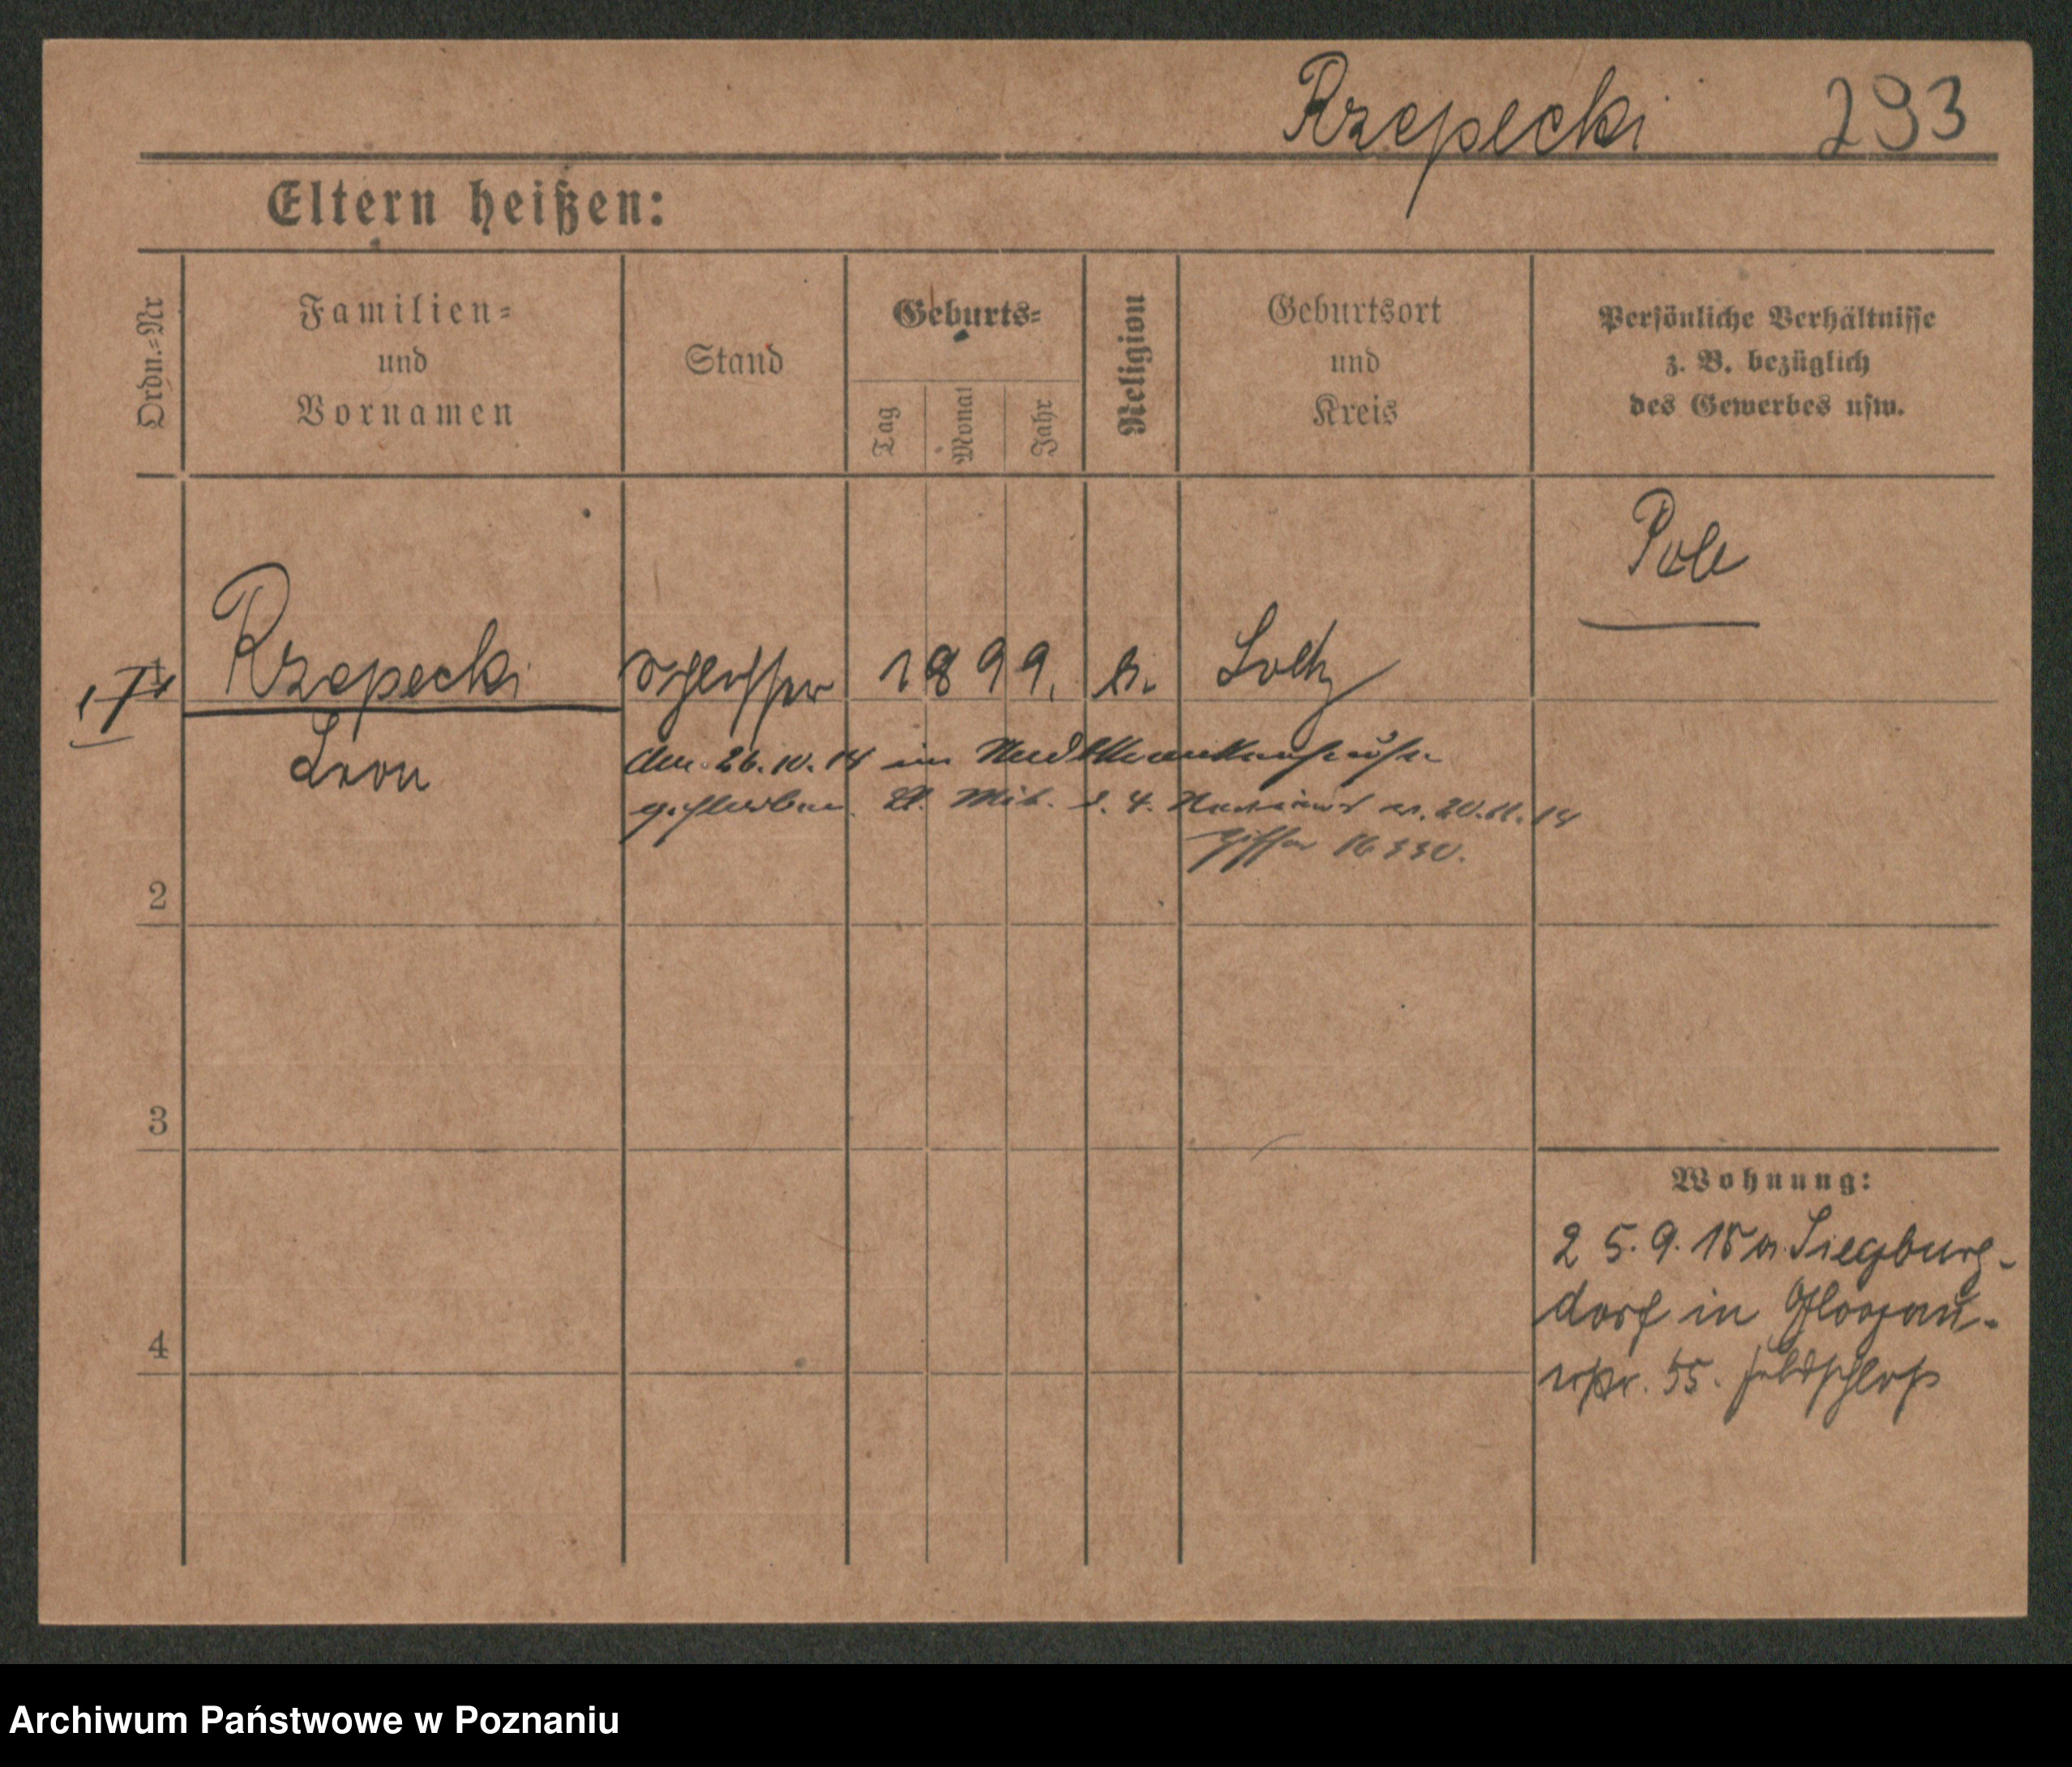 Rzepecki 293
Eltern heißen:
Ordn.=Nr
Familien=
und
Vornamen
Stand
Geburts=
Tag
Monat
Jahr
Religion
Geburtsort
und
Kreis
Persönliche Verhältnisse
z. B. bezüglich
des Gewerbes usw.
Pole
Rzepecki Schlosser 1899.
Leon
26.10.14 im
gestorben. Mit. 4. 20.11.14
2
3
4
Wohnung:
25.9.18 Siegburg-
dorf in Glogau-
55. Feldschloß
Archiwum Państwowe w Poznaniu